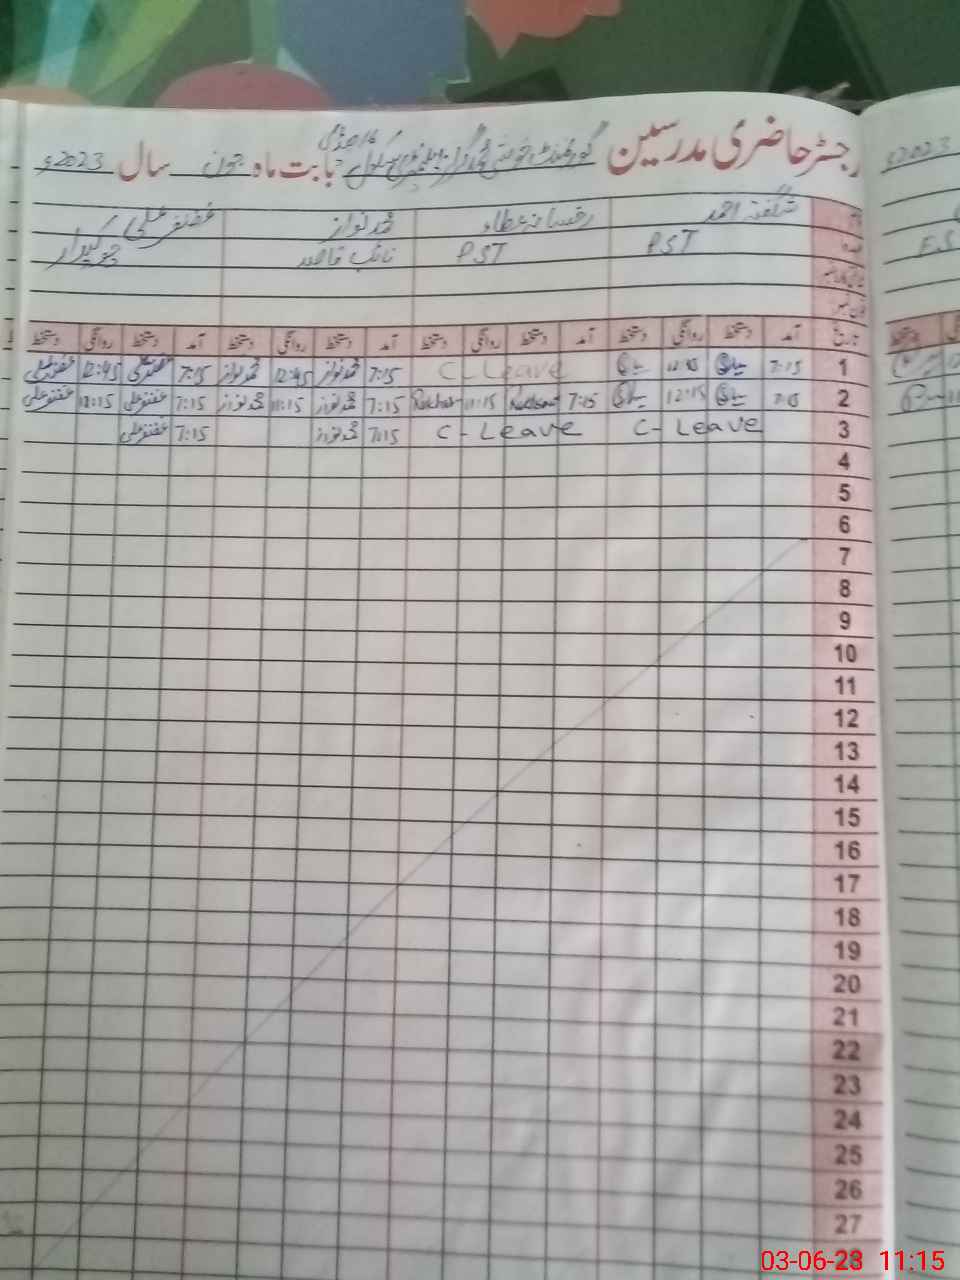 رجسٹر حاضری مدرسین گورنمنٹ گرلز ایلیمنٹری سکول بابت ماہ جون سال 2023ء
شگفتہ احمد رخسانہ عطاء محمد نواز غضنفر علی
PST PST نائب قاصد چوکیدار
تاریخ آمد دستخط روانگی دستخط آمد دستخط روانگی دستخط آمد دستخط روانگی دستخط آمد دستخط روانگی دستخط
1 7:15 12:45 C-Leave 7:15 محمد نواز 12:45 محمد نواز 7:15 غضنفر علی 12:45 غضنفر علی
2 7:15 12:15 7:15 11:15 7:15 محمد نواز 11:15 محمد نواز 7:15 غضنفر علی 11:15 غضنفر علی
3 C-Leave C-Leave 7:15 محمد نواز 7:15 غضنفر علی
4
5
6
7
8
9
10
11
12
13
14
15
16
17
18
19
20
21
22
23
24
25
26
27
28
2023ء
03-06-23 11:15